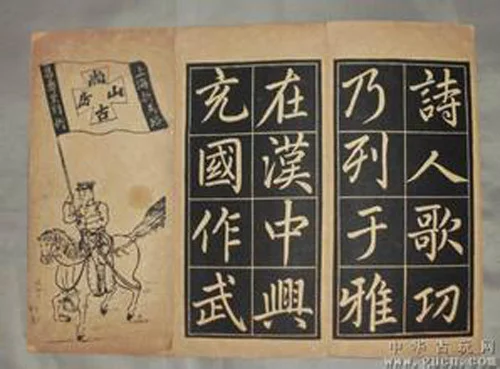 詩人歌功
乃列于雅
在漢中興
充國作武
尚古山房
中华古玩网
www.gucn.com